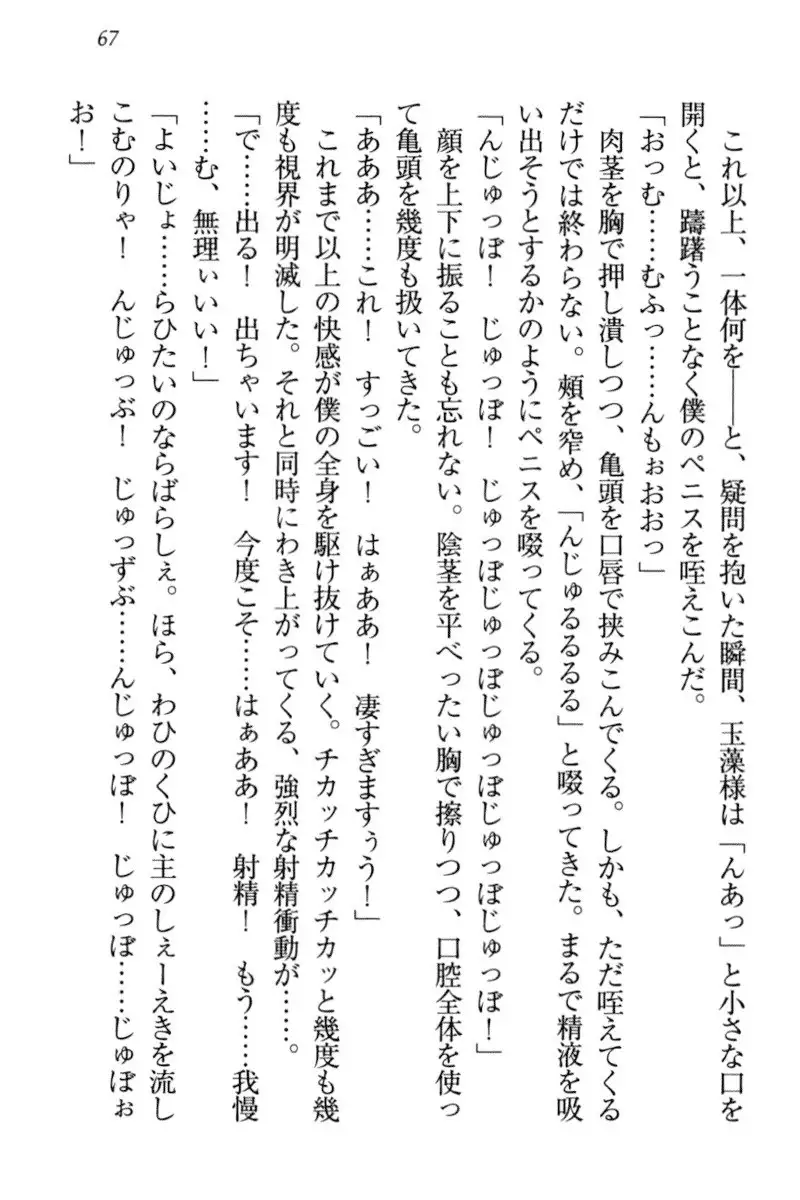 67
これ以上、一体何を――と、疑問を抱いた瞬間、玉藻様は「んあっ」と小さな口を
開くと、躊躇うことなく僕のペニスを咥えこんだ。
「おっむ……むふっ……んもぉおおっ」
肉茎を胸で押し潰しつつ、亀頭を口唇で挟みこんでくる。しかも、ただ咥えてくる
だけでは終わらない。頬を窄め、「んじゅるるるる」と啜ってきた。まるで精液を吸
い出そうとするかのようにペニスを啜ってくる。
「んじゅっぽ！　じゅっぽ！　じゅっぽじゅっぽじゅっぽじゅっぽ！」
顔を上下に振ることも忘れない。陰茎を平べったい胸で擦りつつ、口腔全体を使っ
て亀頭を幾度も扱いてきた。
「あああ……これ！　すっごい！　はぁああ！　凄すぎますぅう！」
これまで以上の快感が僕の全身を駆け抜けていく。チカッチカッと幾度も幾
度も視界が明滅した。それと同時にわき上がってくる、強烈な射精衝動が……。
「で……出る！　出ちゃいます！　今度こそ……はぁああ！　射精！　もう……我慢
……む、無理ぃいい！」
「よいじょ……らひたいのならばらしぇ。ほら、わひのくひに主のしぇーえきを流し
こむのりゃ！　んじゅっぶ！　じゅっずぶ……んじゅっぽ！　じゅっぽ……じゅぽぉ
お！」